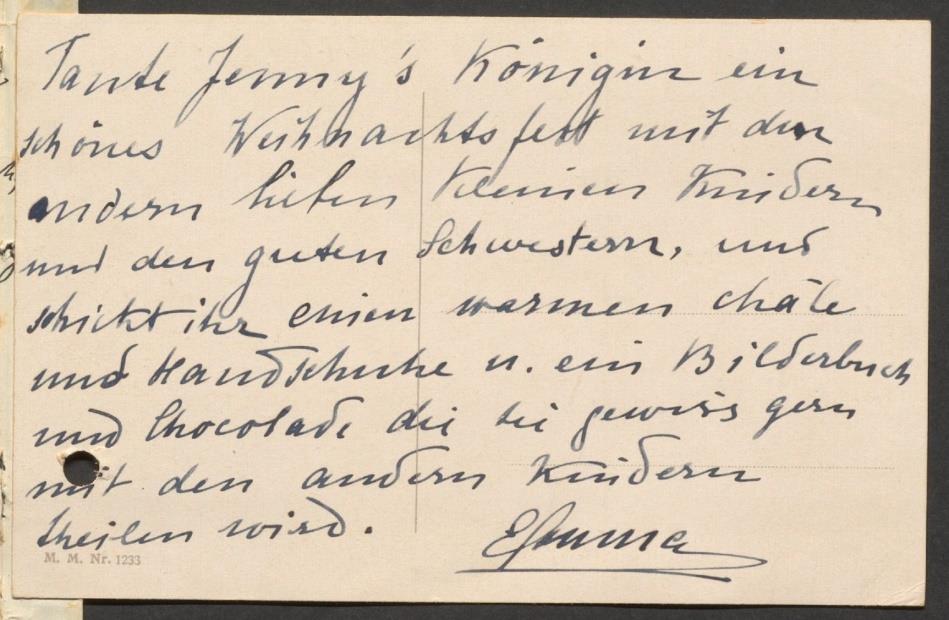 Tante Jenny's Königin ein
schönes Weihnachtsfest mit den
andern lieben kleinen Kindern
und den guten Schwestern, und
schickt ihr einen warmen châle
und Handschuhe u. ein Bilderbuch
und Chocolade die sie gewiss gern
mit den andern Kindern
theilen wird.
M. M. Nr. 1233